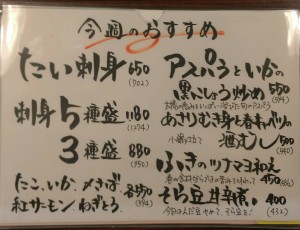 今週のおすすめ
たい刺身 650
(702)
刺身5種盛 1180
(1274)
3種盛 880
(950)
たこ、いか、〆さば、
紅サーモン、ねぎとろ 各550
(594)
アスパラといかの
黒こしょう炒め 550
(594)
あさりむき身と春キャベツの
小鍋仕立て 酒むし 500
(540)
ふきのツナマヨ和え
450
そら豆甘辛煮 400
(432)